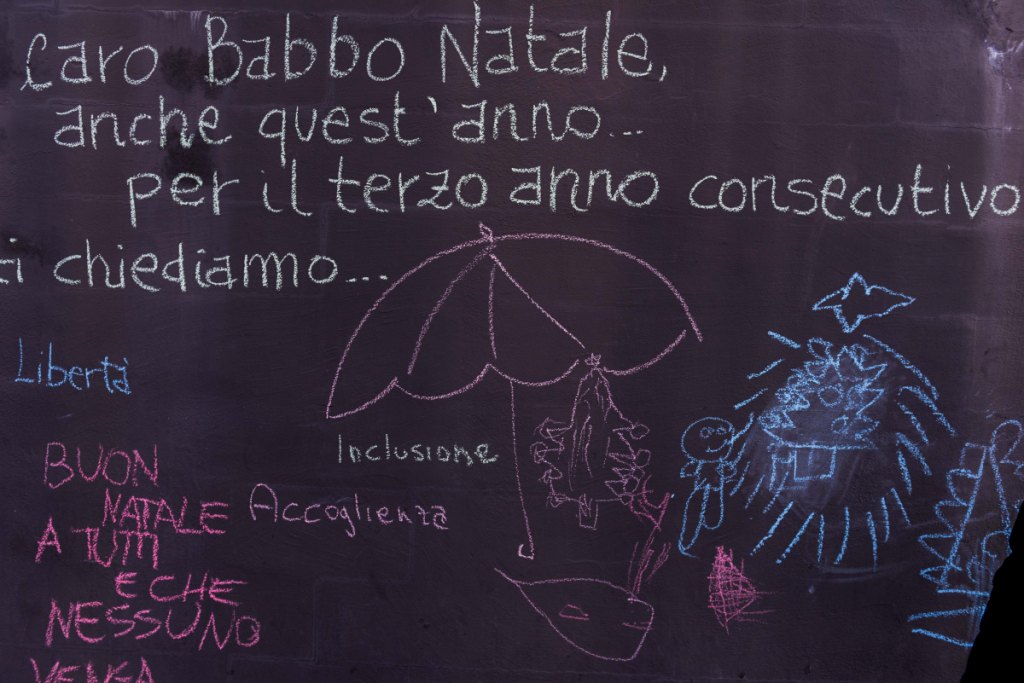 Caro Babbo Natale,
anche quest'anno...
per il terzo anno consecutivo
ti chiediamo...
Libertà
Inclusione
Accoglienza
BUON
NATALE
A TUTTI
E CHE
NESSUNO
VENGA